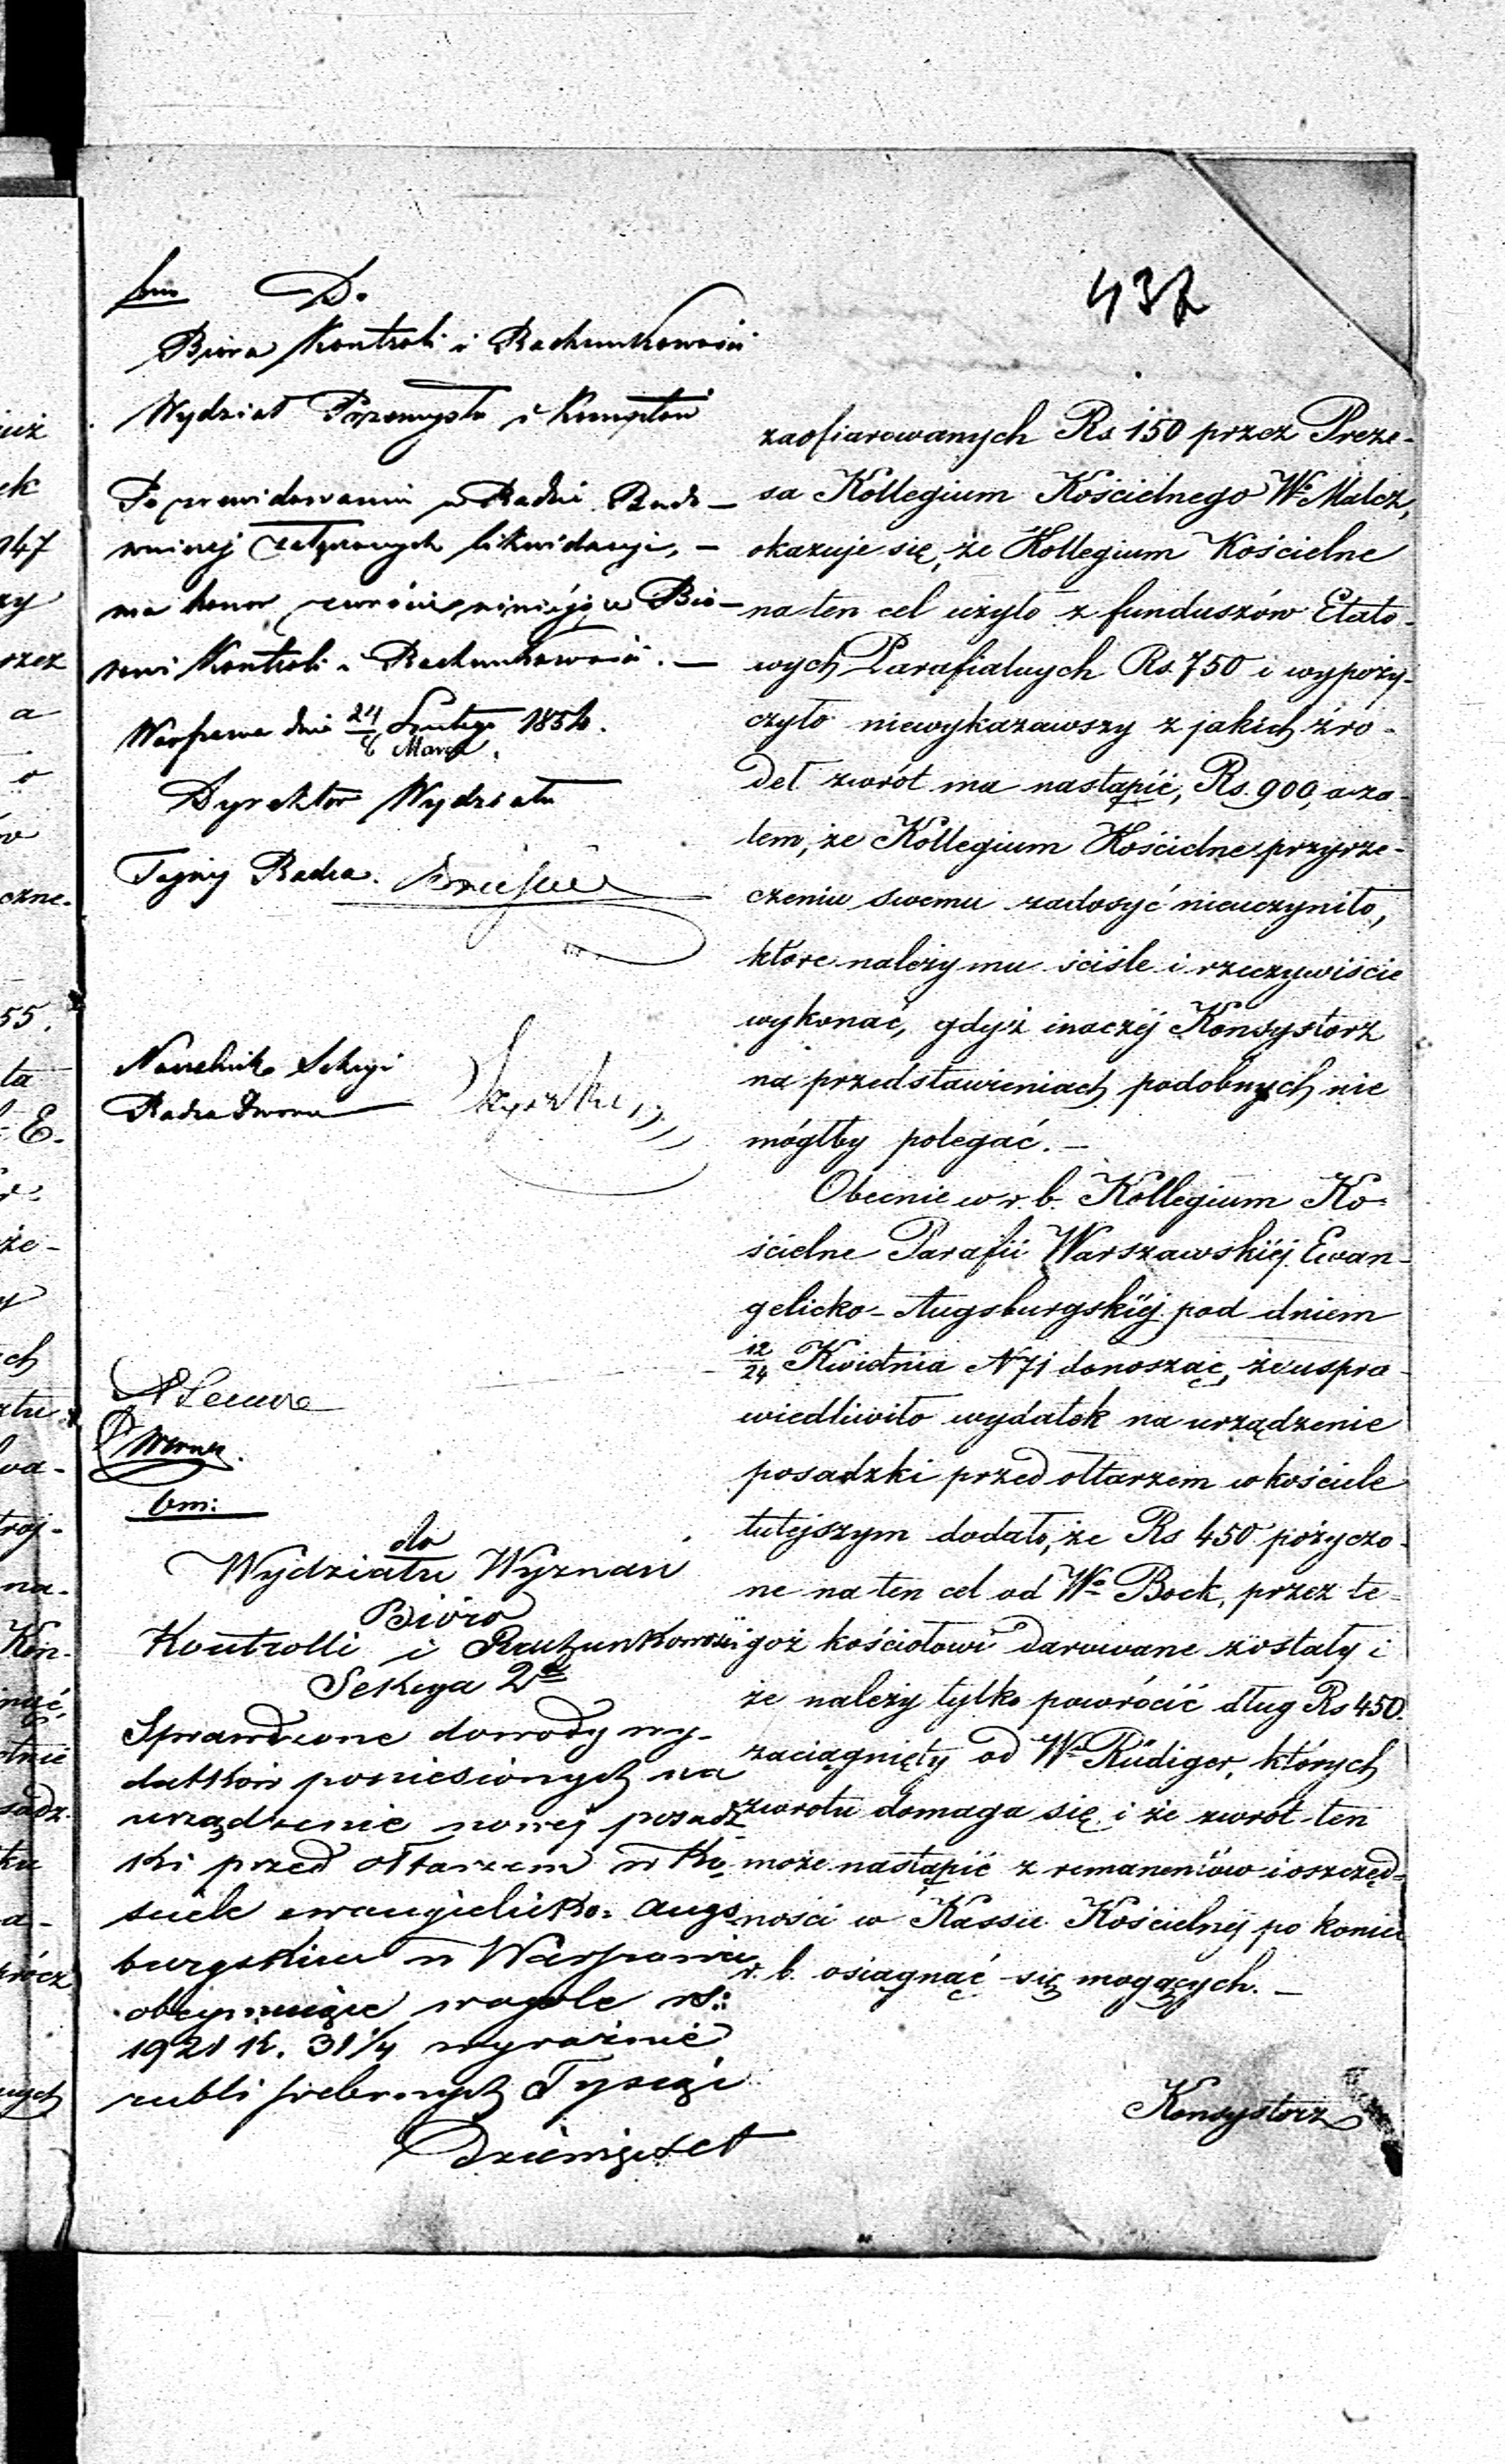 437
D.
Biura Kontroli i Rachunkowości
Wydział Przemysłu i Kunsztów
Po zrewidowaniu w Radzie Budo-
wniczej załączonych likwidacyi, -
ma honor zwrócić niniejsze Bió-
rowi Kontroli i Rachunkowości. -
Warszawa dnia 24 Lutego 1854.
8 Marca.
Dyrektor Wydziału
Tajny Radca.
Naczelnik Sekcyi
Radca Dworu
do
Wydziału Wyznań
Bióro
Kontrolli i Rachunkowości
Sekcya 2ga
Sprawdzone dowody wy-
datków poniesionych na
urządzenie nowej posadz-
ki przed ołtarzem w Ko-
ściele ewangielicko-augs-
burgskim w Warszawie
obejmujące wogole rs:
1921 k. 31 1/4 wyraźnie
rubli srebrnych Tysiąc
Dziewięćset
zaofiarowanych Rs 150 przez Preze-
sa Kollegium Kościelnego Wo Malcz,
okazuje się, że Kollegium Kościelne
na ten cel użyło z funduszów Etato-
wych Parafialnych Rs. 750 i wypoży-
czyło niewykazawszy z jakich źró-
deł zwrót ma nastąpić, Rs. 900, a za-
tem, że Kollegium Kościelne przyrze-
czeniu swemu zadosyć nieuczyniło,
które należy mu ściśle i rzeczywiście
wykonać, gdyż inaczéj Konsystorz
na przedstawieniach podobnych nie
mógłby polegać. -
Obecnie w r. b. Kollegium Ko-
ścielne Parafii Warszawskiéj Ewan-
gelicko-Augsburgskiéj pod dniem
12/24 Kwietnia N 71 donosząc, że uspra-
wiedliwiło wydatek na urządzenie
posadzki przed ołtarzem w kościele
tutejszym dodało, że Rs 450 pożyczo-
ne na ten cel od Wo Bock, przez te-
goż kościołowi darowane zostały i
że należy tylko powrócić dług Rs 450.
zaciągnięty od Wo Rüdiger, których
zwrotu domaga się i że zwrót ten
może nastąpić z remanentów i oszczęd-
ności w Kassie Kościelnej po koniec
r. b. osiągnąć się mogących. -
Konsystorz